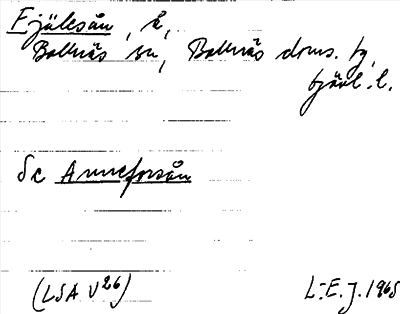 Fjälesån, å,
Bollnäs sn, Bollnäs doms. tg,
Gävl. l.
Se Anneforsån
(LSA V26) L-E.J. 1968